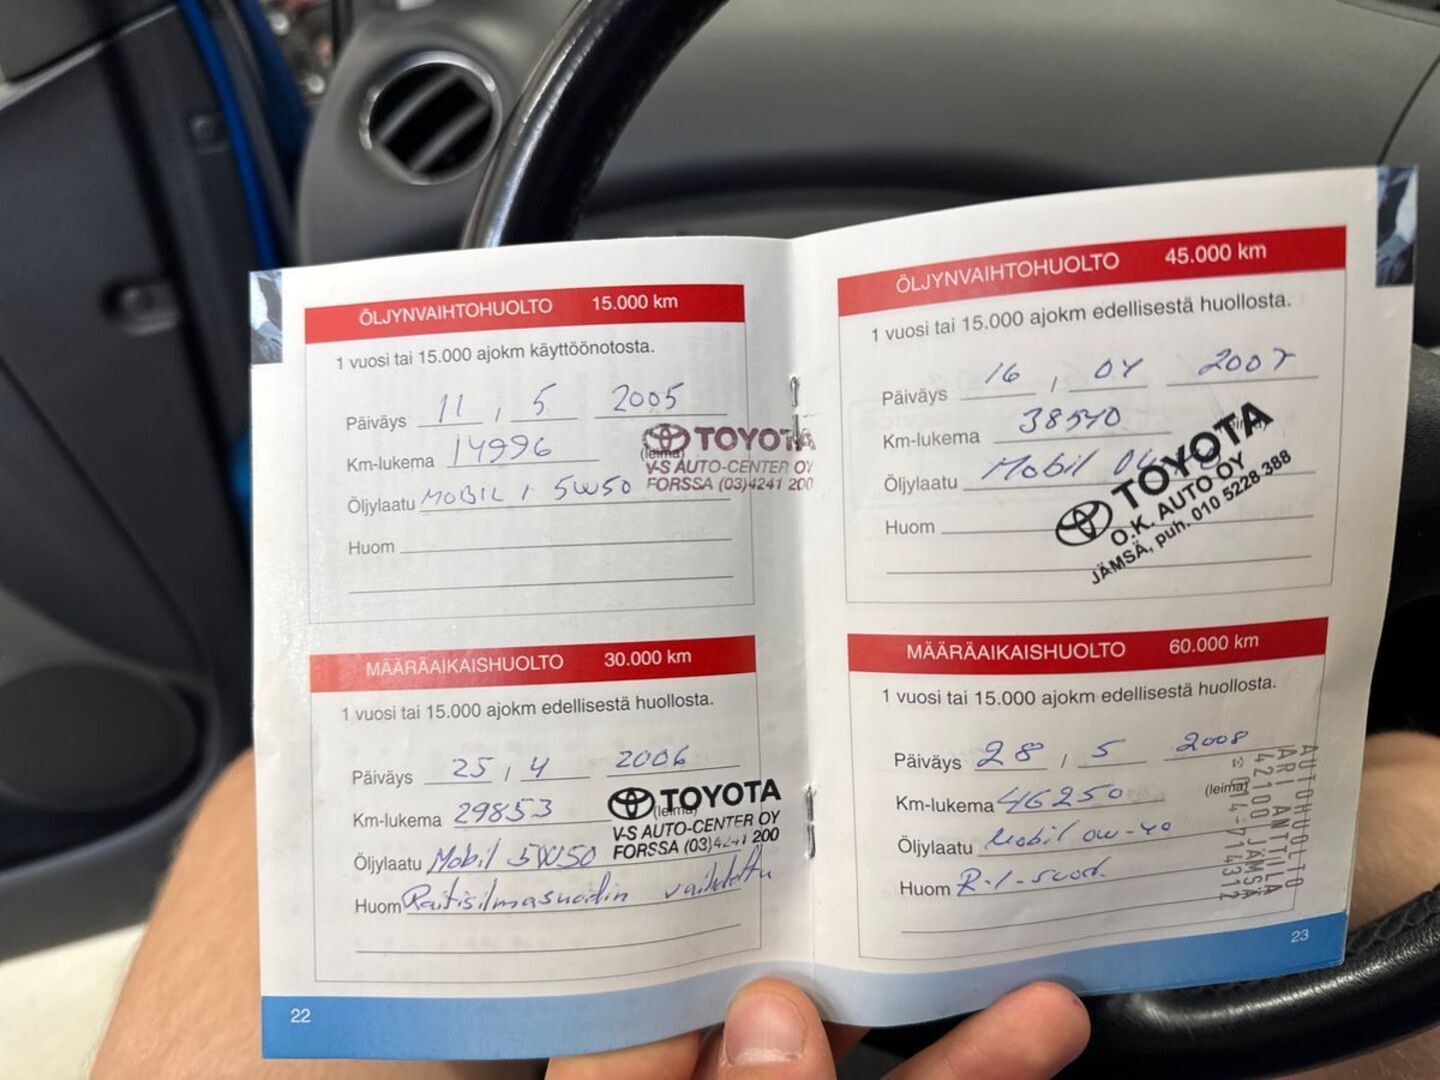 ÖLJYNVAIHTOHUOLTO 15.000 km
1 vuosi tai 15.000 ajokm käyttöönotosta.
Päiväys 11 / 5 2005
Km-lukema 14996
(leima)
TOYOTA
V-S AUTO-CENTER OY
FORSSA (03)4241 200
Öljylaatu MOBIL 1 5W50
Huom
MÄÄRÄAIKAISHUOLTO 30.000 km
1 vuosi tai 15.000 ajokm edellisestä huollosta.
Päiväys 25 / 4 2006
Km-lukema 29853
(leima)
TOYOTA
V-S AUTO-CENTER OY
FORSSA (03)4241 200
Öljylaatu Mobil 5W50
Huom Raitisilmasuodin vaihdettu
22
ÖLJYNVAIHTOHUOLTO 45.000 km
1 vuosi tai 15.000 ajokm edellisestä huollosta.
Päiväys 16 / 04 2007
Km-lukema 38540
Öljylaatu Mobil
TOYOTA
O.K. AUTO OY
JÄMSÄ, puh. 010 5228 388
Huom
MÄÄRÄAIKAISHUOLTO 60.000 km
1 vuosi tai 15.000 ajokm edellisestä huollosta.
Päiväys 28 / 5 2008
Km-lukema 46250
(leima)
Öljylaatu Mobil 0W-40
Huom R-1-suod.
AUTOHUOLTO
ARI ANTTILA
42100 JÄMSÄ
23